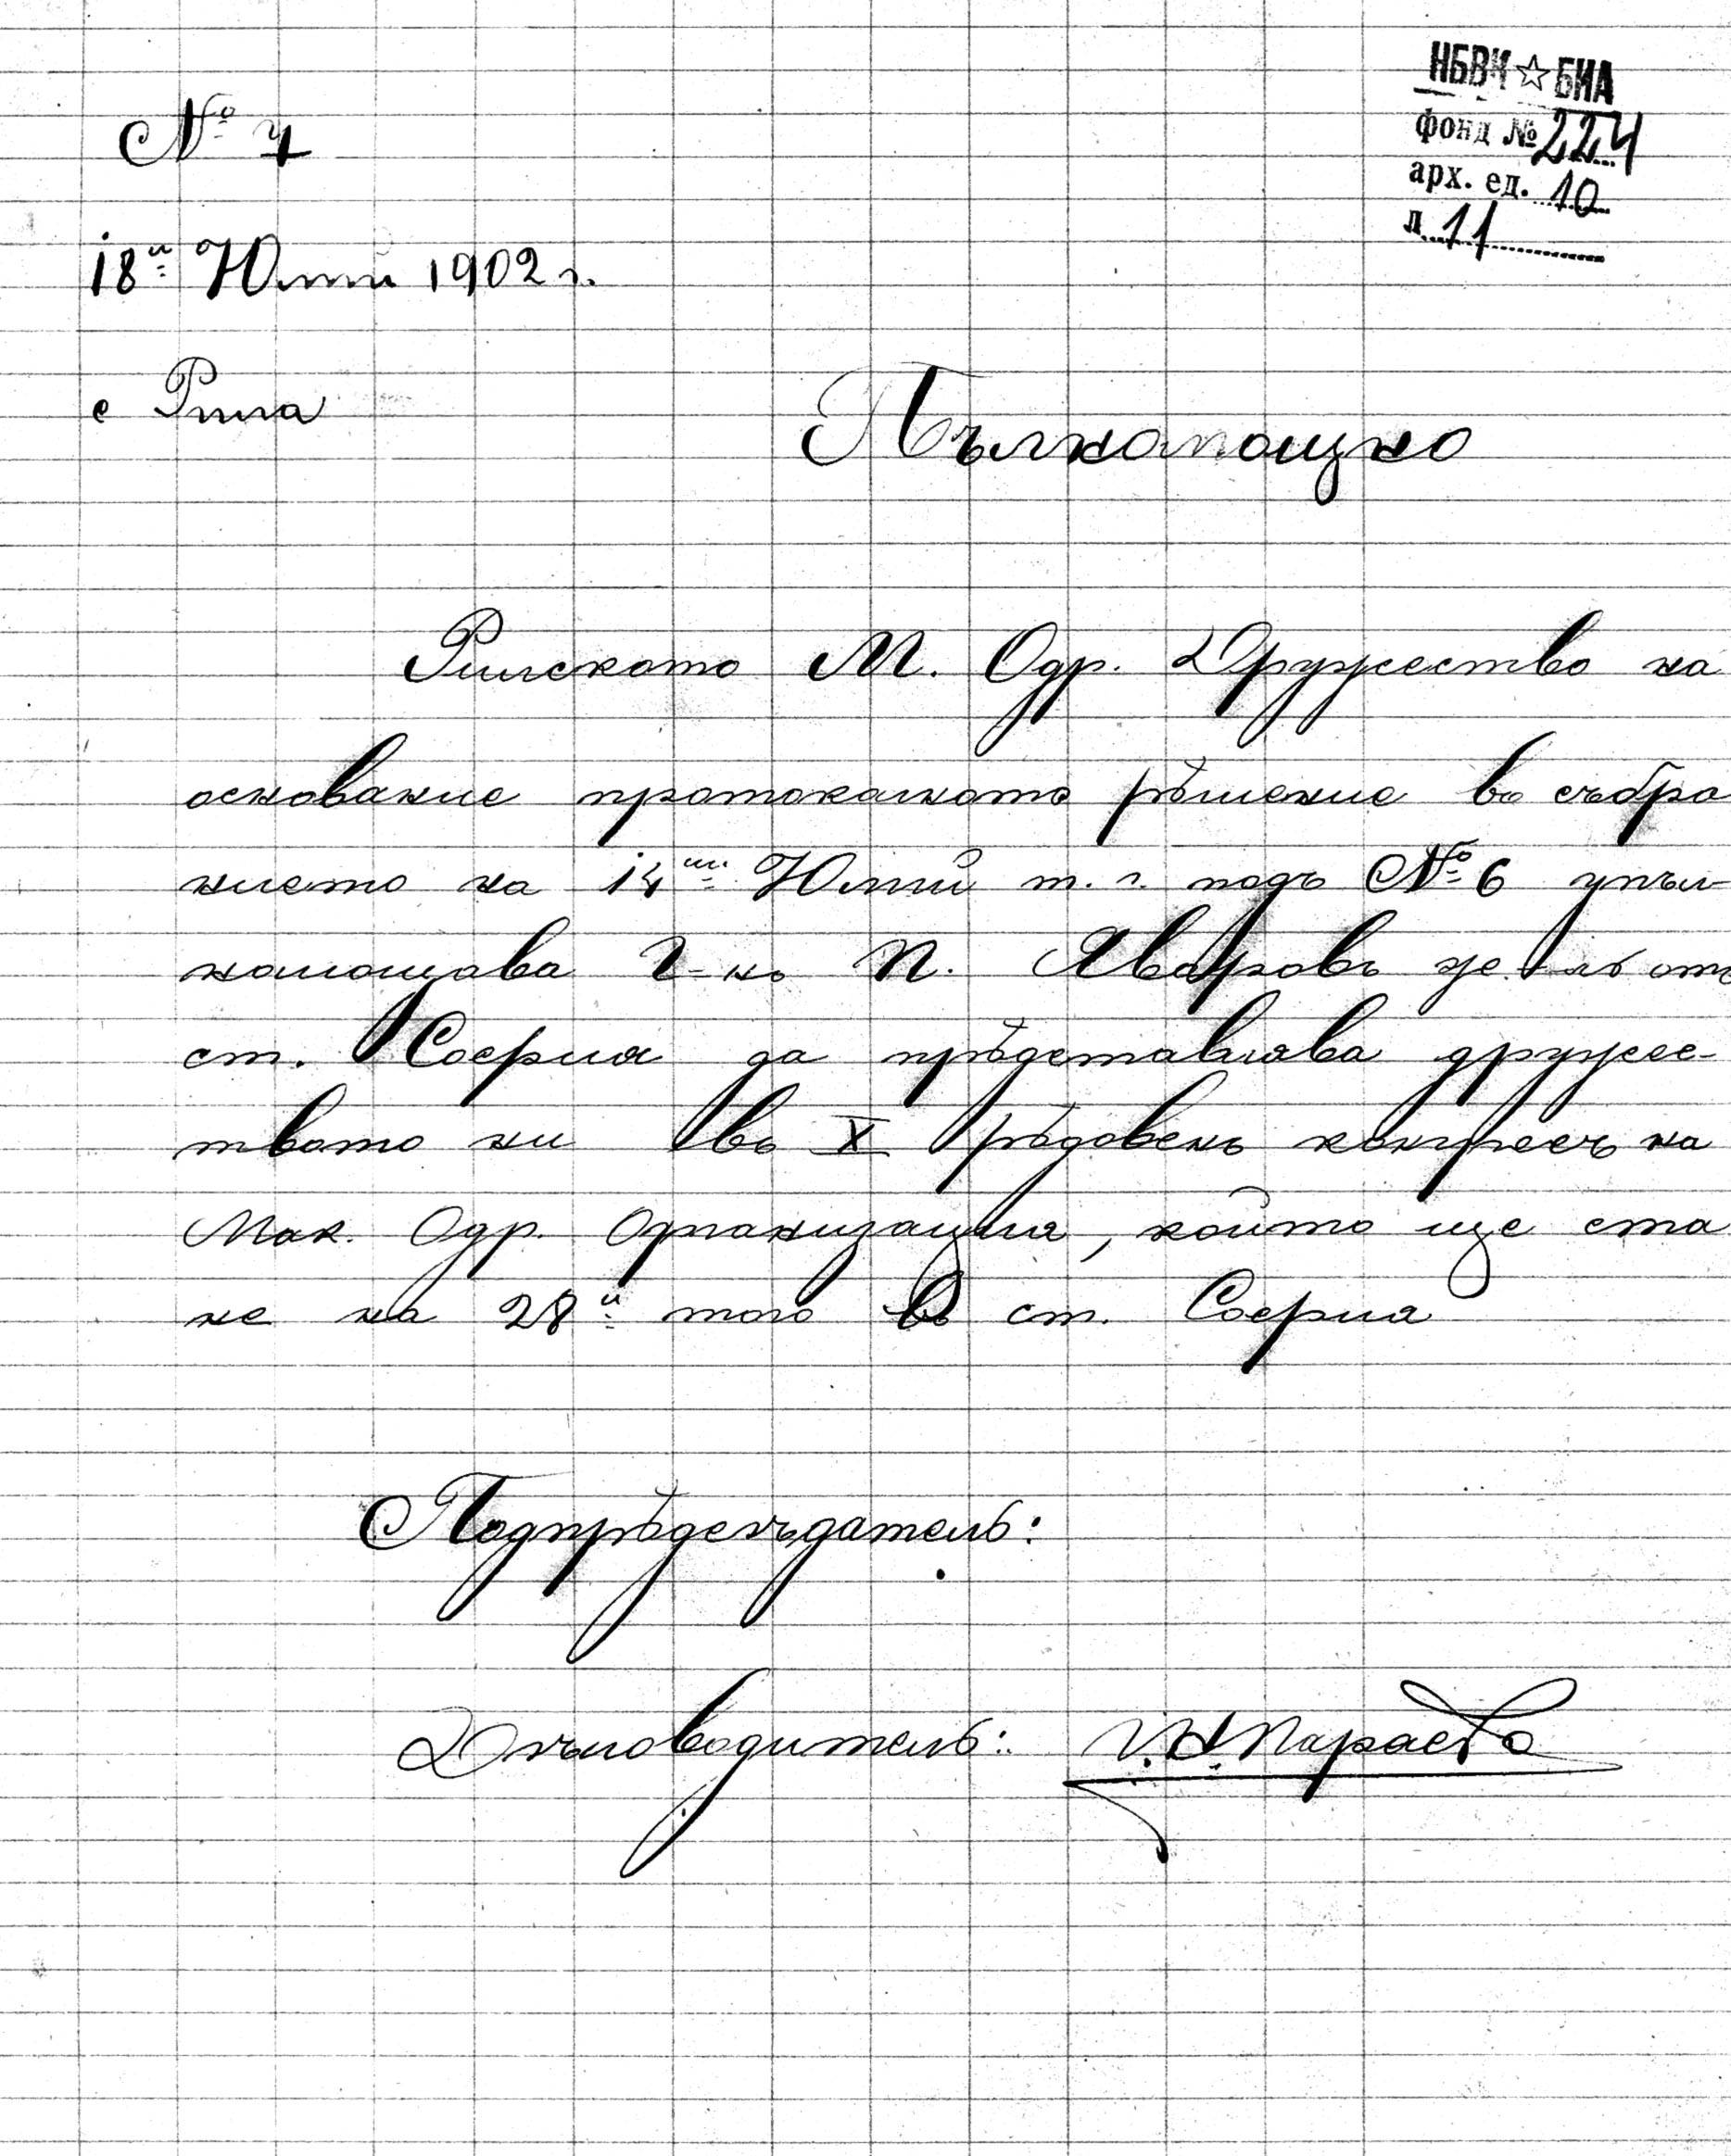 НБВК ☆ БИА
фонд № 224
арх. ед. 10
л. 11
№ 7
18й Юлий 1902 г.
с Рила
Пълномощно
Рилското М. Одр. Дружество на
основание протоколното рѣшение въ събра
нието на 14ий Юлий т. г. подъ № 6 упъл-
номощава Г-нъ П. Яворовъ отъ
ст. София да прѣдставлява друже-
твото ни въ X рѣдовенъ конгресъ на
Мак. Одр. Организация, който ще ста
не на 28й того въ ст. София
Подпрѣдсѣдатель:
Дѣловодитель: